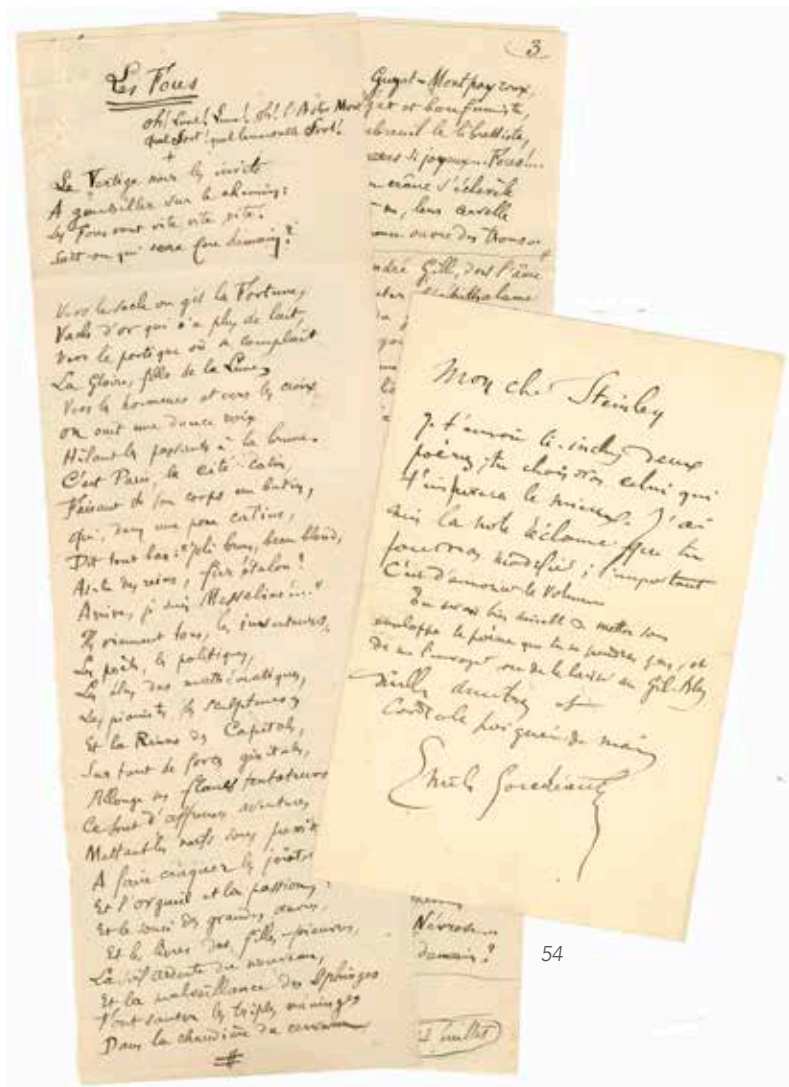 Les Fous
oh! Lune! Lune! oh! l'Astre Mort
quel Sort! quel Sort!
+
Le Vertige nous invite
A gambiller sur le chemin:
Les Fous vont vite vite vite!
Sait-on qui sera fou demain?
Vers le socle où gît la Fortune,
Vache d'or qui n'a plus de lait,
Vers le portique où se complaît
La Gloire, fille de la Lune,
Vers les honneurs et vers les croix
on ouït une douce voix
Hélant les passants à la brune.
C'est Paris, la cité catin,
Faisant de son corps un butin,
qui, dans une pose
Dit tout bas: "joli brun, beau blond,
As-tu des reins, fier étalon?
Arrive, je suis Messaline..."
Ils viennent tous, les inventeurs,
Les poètes, les politiques,
Les des mathématiques,
Les pianistes, les sculpteurs,
Et la Reine des Capitales,
Sur tout de forces génitales,
Allonge ses flancs tentateurs
Ce sont d'affreuses aventures
Mettant les nerfs sous
A faire craquer les
Et l'orgueil et les passions,
Et le souci des grandes
Et les livres des filles-pieuvres,
La soif ardente du nouveau,
Et la malveillance des Sphinges
Font sauter les triples méninges
Dans la chaudière du cerveau
3
Guyot-Montpayroux,
et bon fumiste,
le libelliste,
si joyeux.. Fous!...
crâne s'
leur cervelle
ouvre des trous
André Gill, dont l'âme
épithalame
Névrose
demain?
Juillet
Mon cher Steinley
Je t'envoie ci-inclus deux
poèmes, tu choisiras celui qui
t'inspirera le mieux. J'ai
mis la note réclame que tu
pourras modifier; l'important
C'est d'annoncer le volume
Tu serais bien aimable de mettre sous
enveloppe le poème que tu ne prendras pas, et
de me l'envoyer ou de le laisser au Gil-Blas
Mille amitiés et
Cordiale poignée de main
Emile Goudeau
54